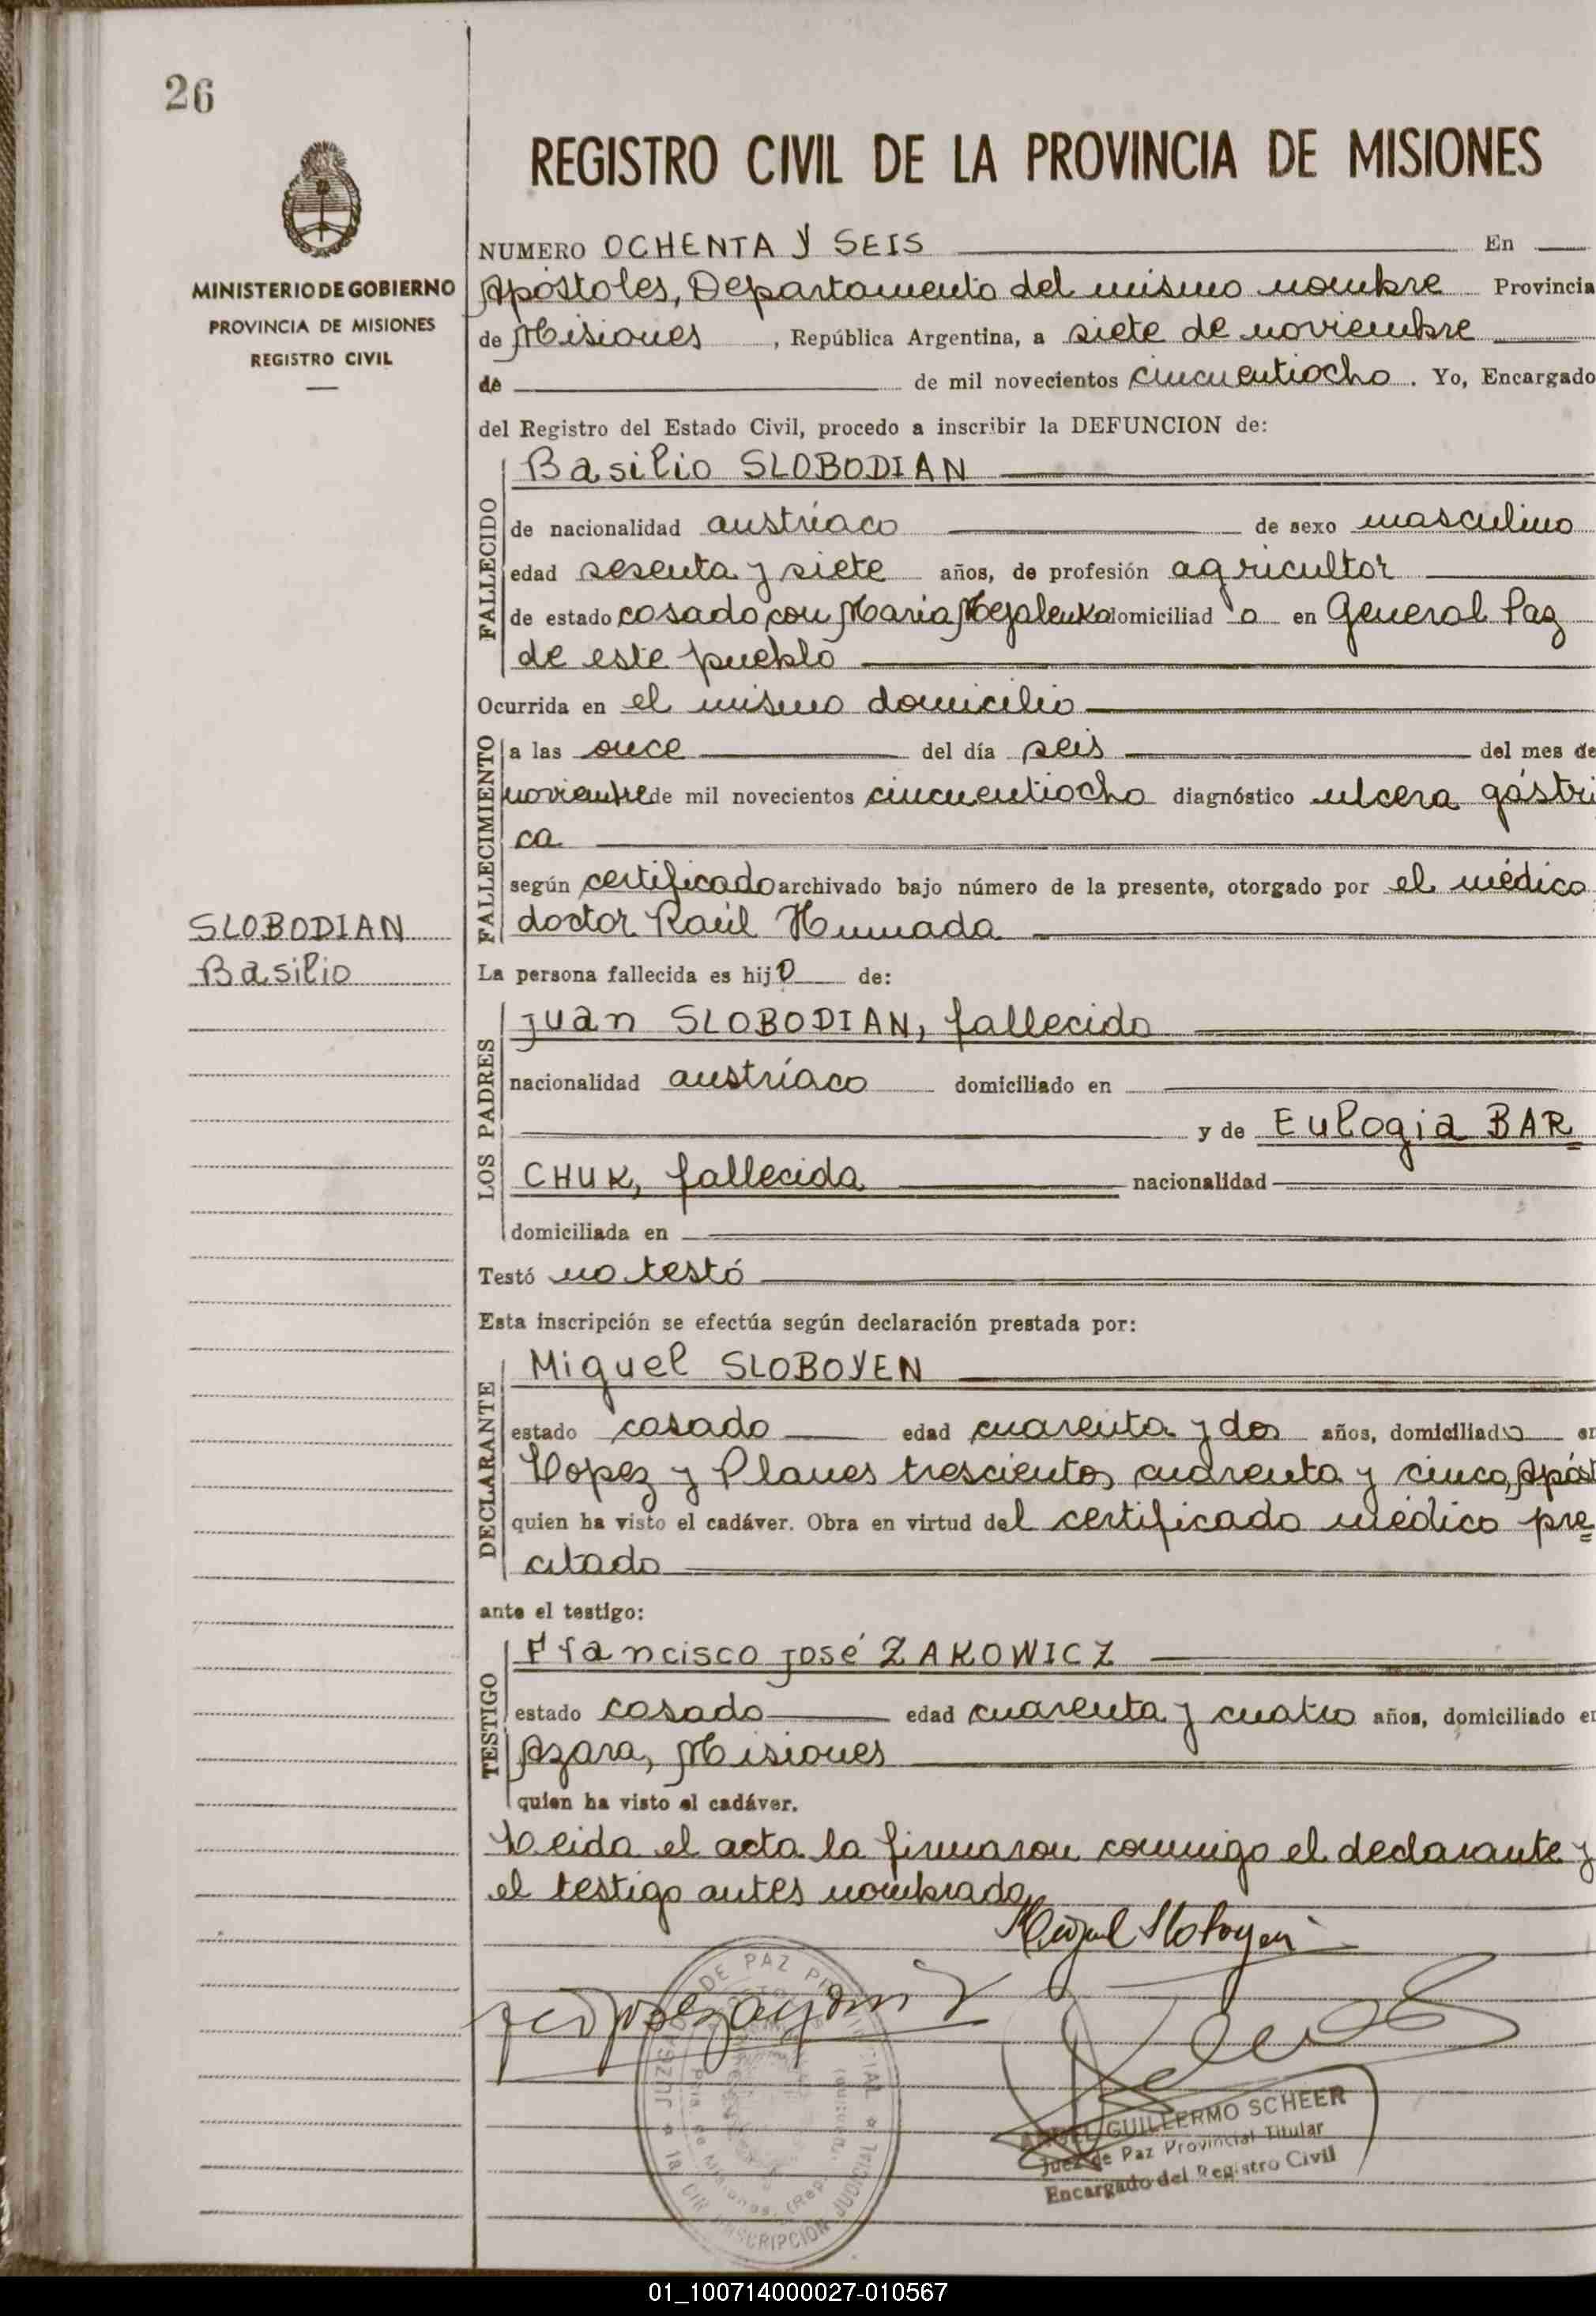 26
REGISTRO CIVIL DE LA PROVINCIA DE MISIONES
MINISTERIO DE GOBIERNO
PROVINCIA DE MISIONES
REGISTRO CIVIL
NUMERO OCHENTA Y SEIS En
Apóstoles, Departamento del mismo nombre Provincia
de Misiones, República Argentina, a siete de noviembre
de de mil novecientos cincuentiocho. Yo, Encargado
del Registro del Estado Civil, procedo a inscribir la DEFUNCION de:
FALLECIDO
Basilio SLOBODIAN
de nacionalidad austríaco de sexo masculino
edad sesenta y siete años, de profesión agricultor
de estado casado con María domiciliado en General Paz
de este pueblo
Ocurrida en el mismo domicilio
FALLECIMIENTO
a las once del día seis del mes de
noviembre de mil novecientos cincuentiocho diagnóstico ulcera gástri
ca
según certificado archivado bajo número de la presente, otorgado por el médico
doctor Raúl Humada
SLOBODIAN
Basilio
La persona fallecida es hijo de:
LOS PADRES
Juan SLOBODIAN, fallecido
nacionalidad austríaco domiciliado en
y de Eulogia BAR=
CHUK, fallecida nacionalidad
domiciliada en
Testó no testó
Esta inscripción se efectúa según declaración prestada por:
DECLARANTE
Miguel SLOBOYEN
estado casado edad cuarenta y dos años, domiciliado en
Lopez y Planes trescientos cuarenta y cinco, Apóst
quien ha visto el cadáver. Obra en virtud del certificado médico pre=
citado
ante el testigo:
TESTIGO
Francisco José ZAKOWICZ
estado casado edad cuarenta y cuatro años, domiciliado en
Azara, Misiones
quien ha visto el cadáver.
Leida el acta la firmaron conmigo el declarante y
el testigo antes nombrado
Miguel Sloboyen
JUZGADO DE PAZ PROVINCIAL
1a CIRCUNSCRIPCION JUDICIAL
GUILLERMO SCHEER
Juez de Paz Provincial Titular
Encargado del Registro Civil
01_100714000027-010567